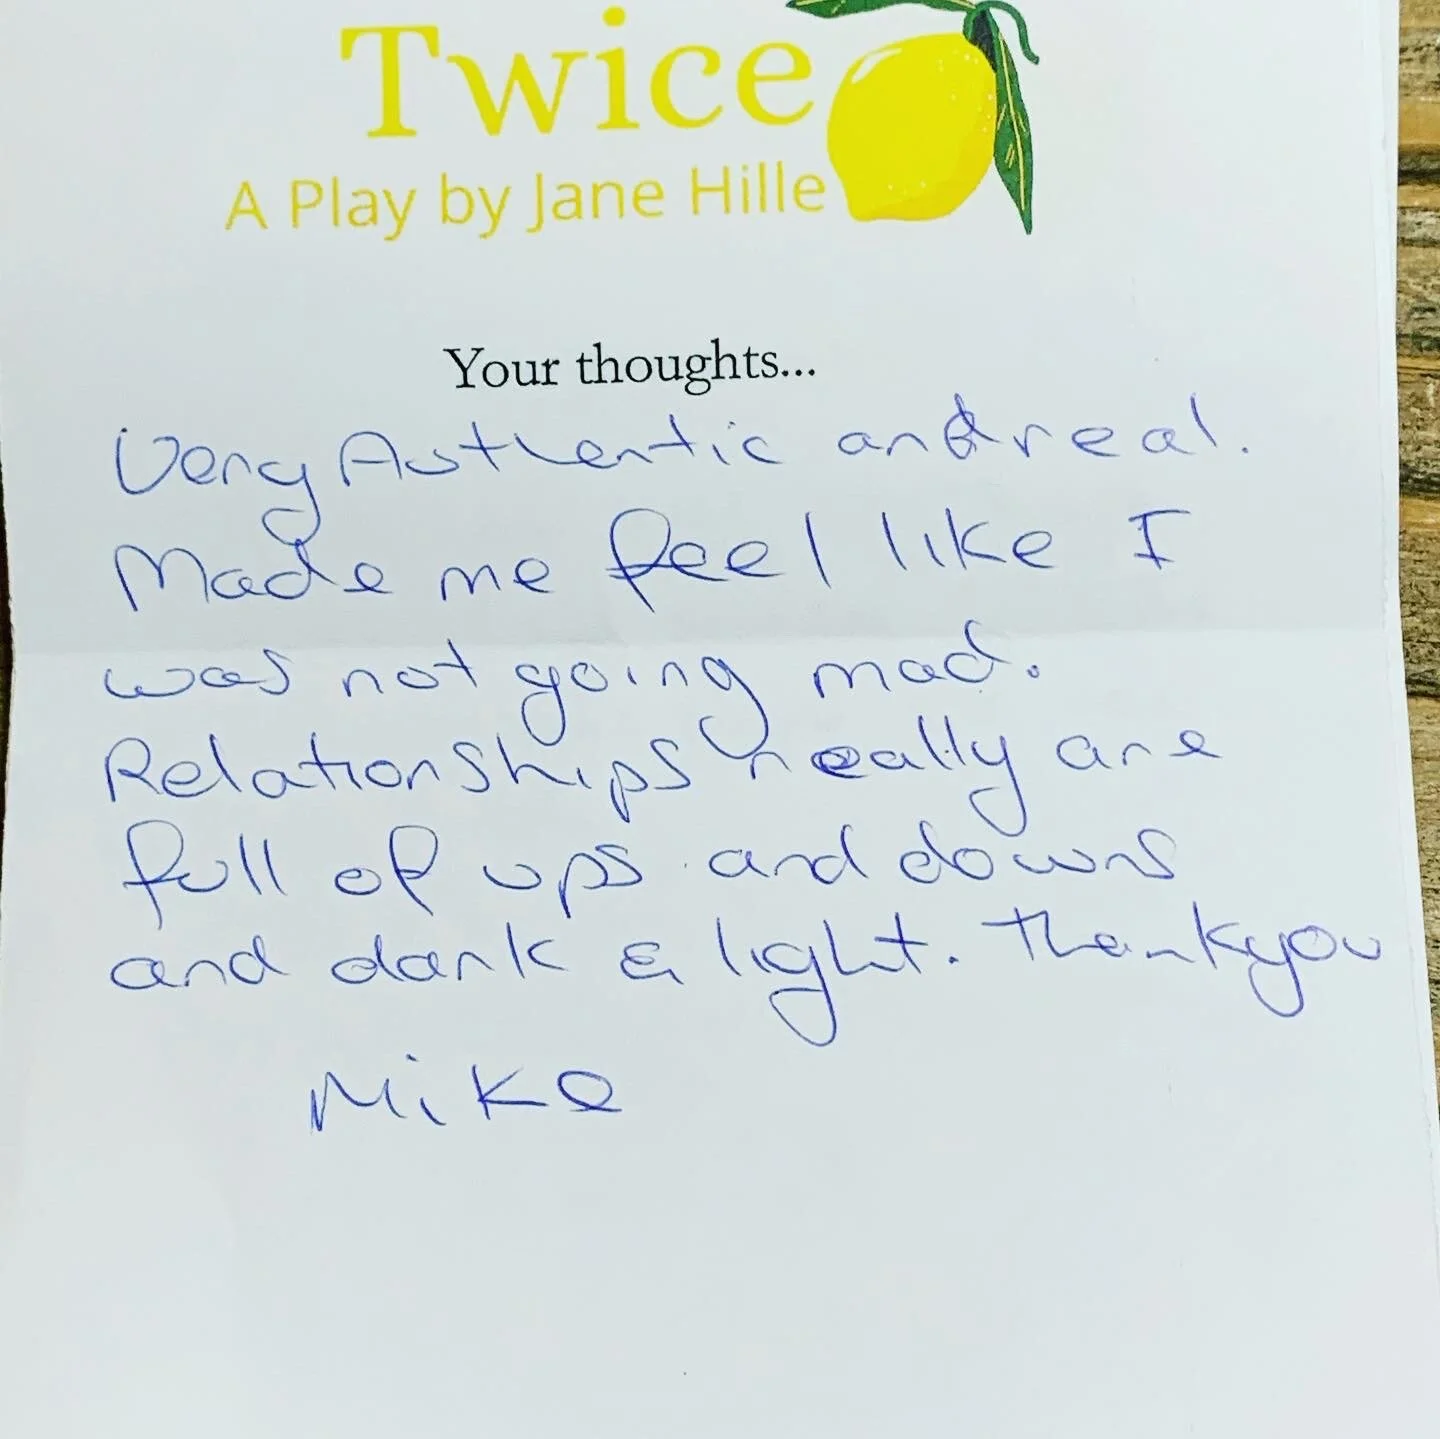 Twice
A Play by Jane Hille
Your thoughts...
Very Authentic and real.
Made me feel like I
was not going mad.
Relationships really are
full of ups and downs
and dark & light. Thankyou
Mike